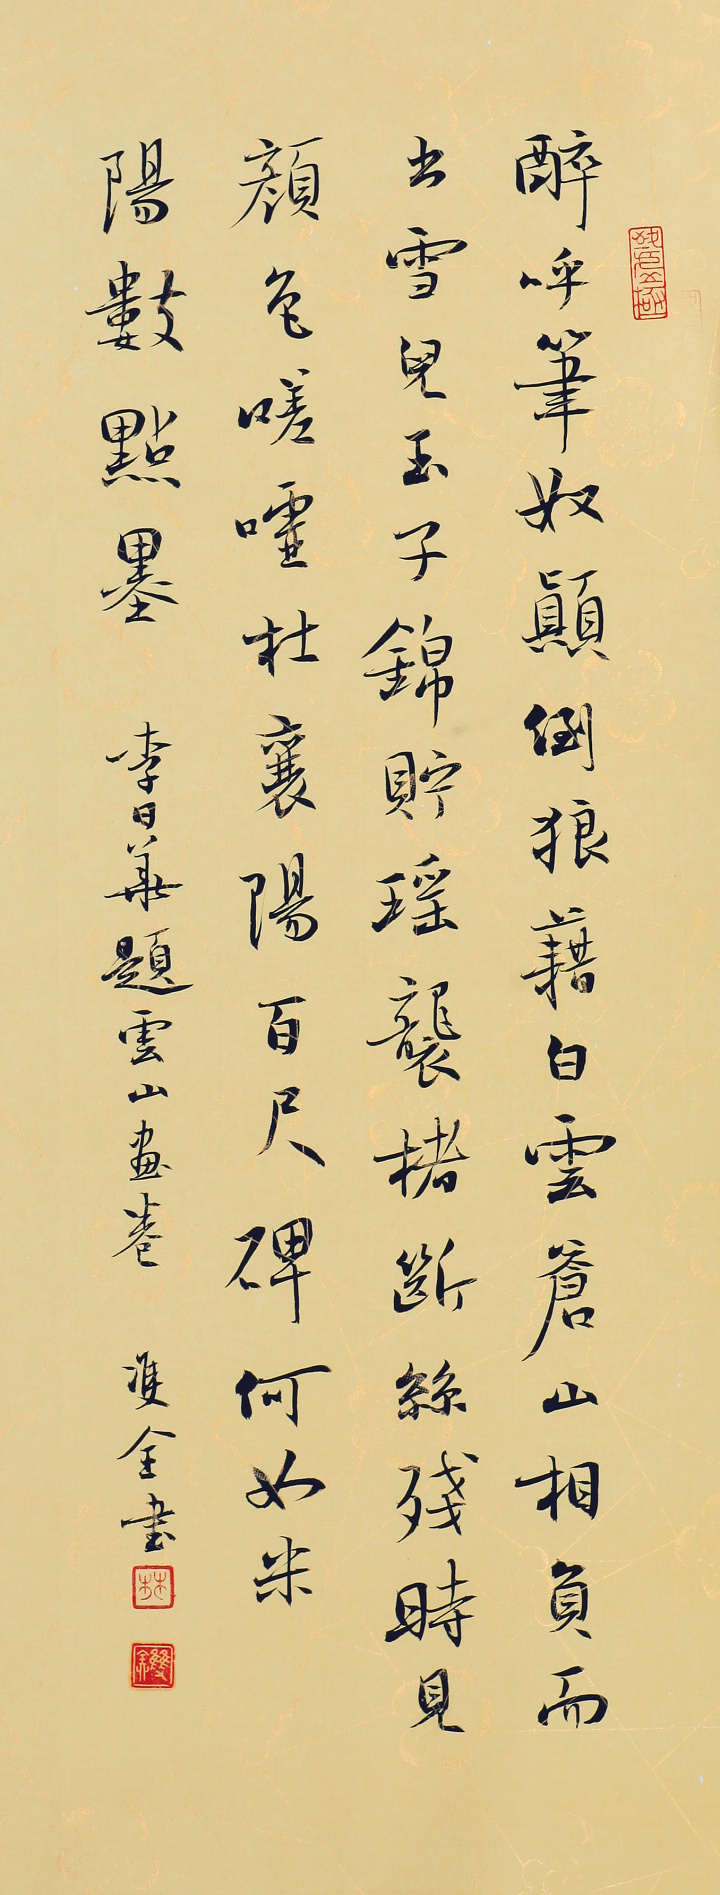 醉呼筆奴顛倒狼藉白雲蒼山相負而
出雪兒玉子錦貯瑶襲楮斷絲殘時見
顔色嗟嚄杜襄陽百尺碑何如米
陽數點墨
李日華題雲山畫卷
雙全書
林
雙全